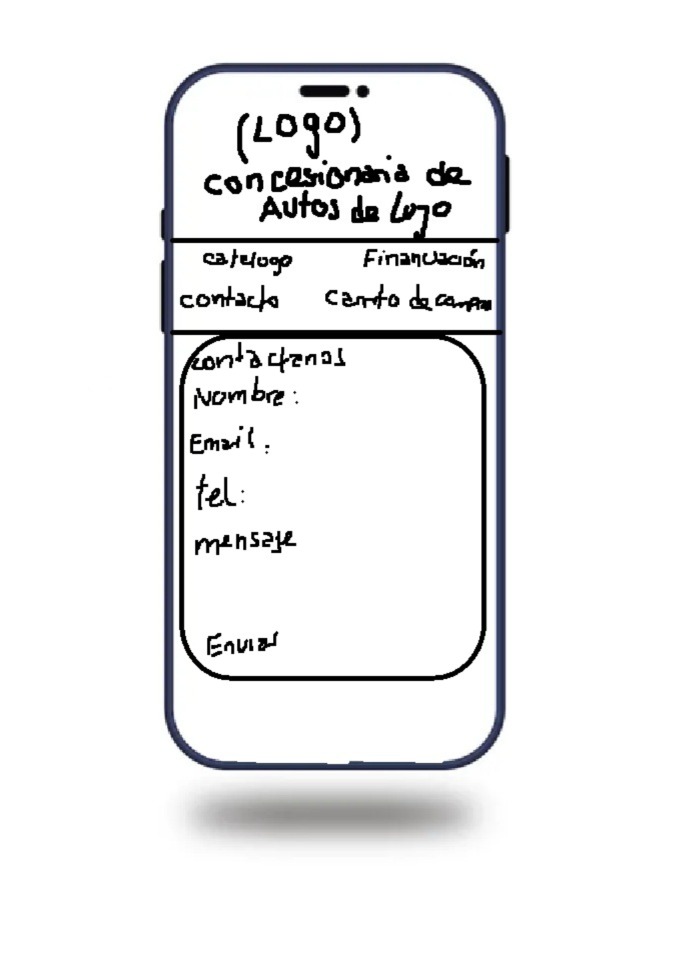 (Logo)
concesionaria de
Autos de lujo
catalogo Financiación
contacto Carrito de compras
contactenos
Nombre:
Email:
tel:
mensaje
Enviar